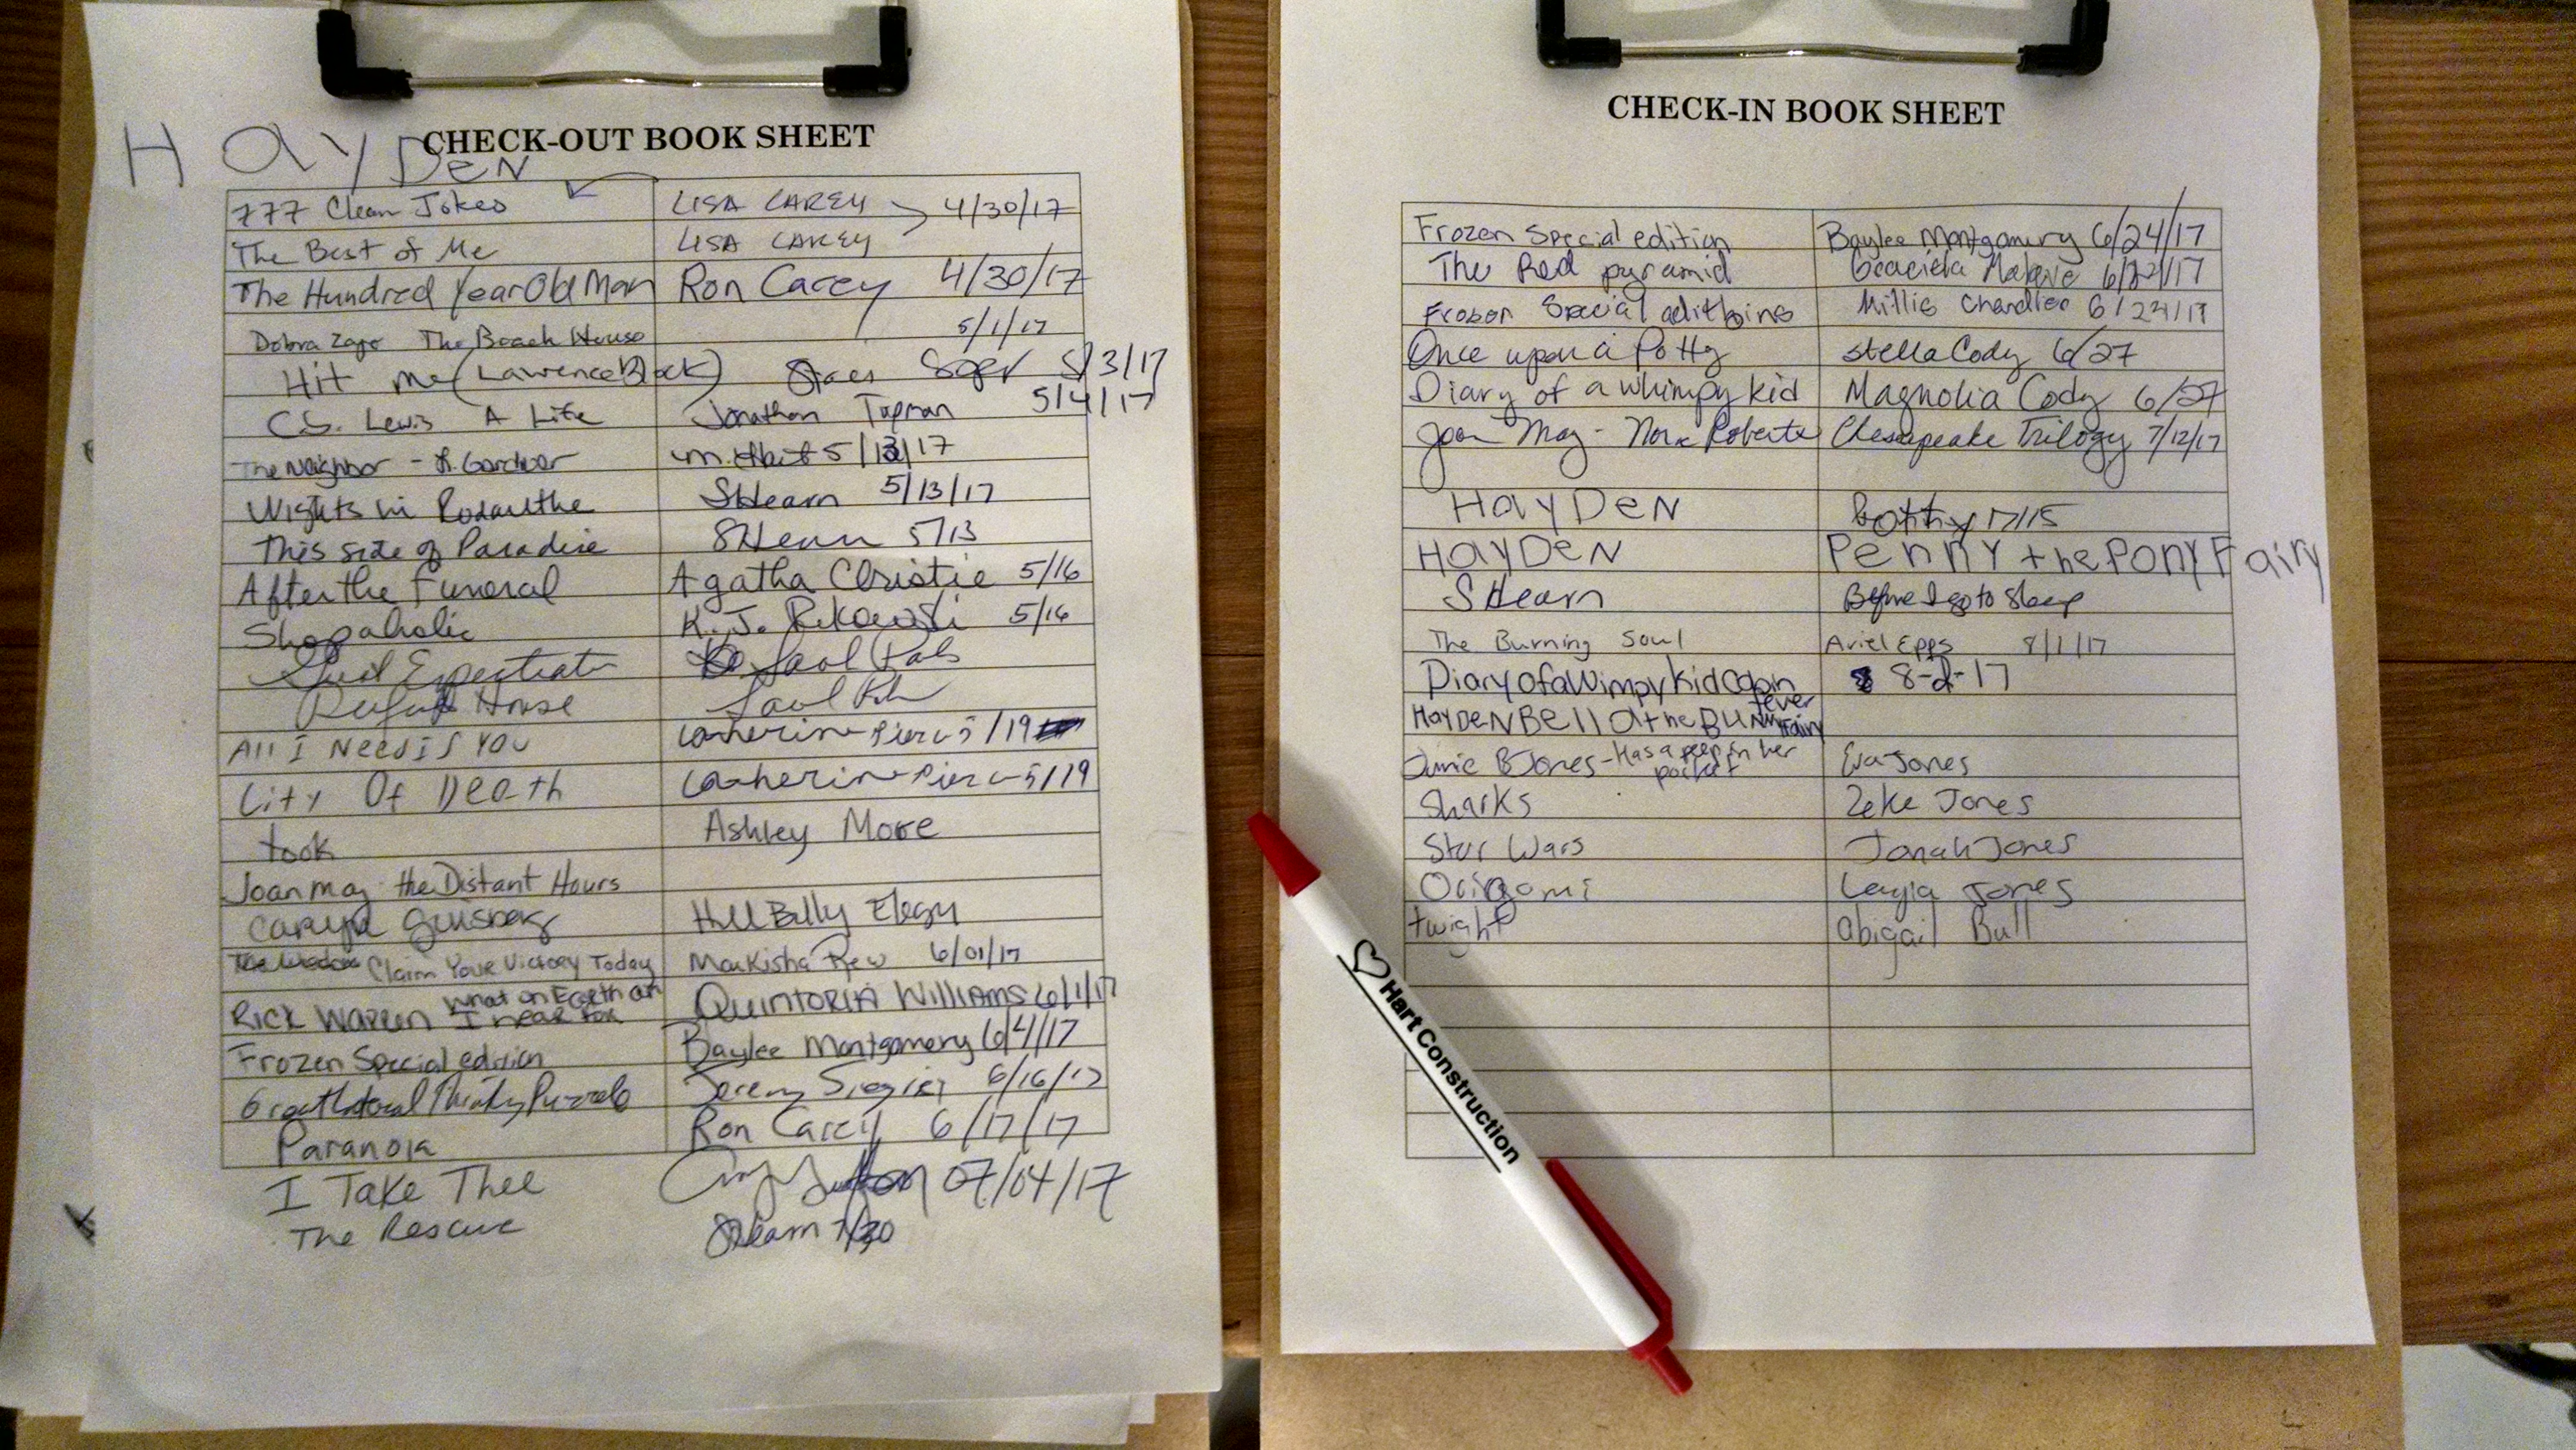 CHECK-OUT BOOK SHEET
HAYDEN
777 Clean Jokes LISA CAREY 4/30/17
The Best of Me LISA CAREY
The Hundred Year Old Man Ron Carey 4/30/17
The Beach House 5/1/17
Hit Me (Lawrence Block) 5/3/17
C.S. Lewis A Life Jonathan 5/4/17
The Neighbor - L. Gardner 5/13/17
Nights in Rodanthe SHearn 5/13/17
This side of Paradise SHearn 5/13
After the Funeral Agatha Christie 5/16
Shopaholic K. J. 5/16
Saul
House Saul
All I Need is YOU Catherine Pierce 5/19
City Of Death Catherine Pierce 5/19
took Ashley More
Joan May - the Distant Hours
Hill Billy Elegy
Claim Your Victory Today 6/01/17
Rick Warren What on Earth am I near for QUINTORIA WILLIAMS 6/1/17
Frozen Special edition Baylee Montgomery 6/4/17
Jeremy 6/16/17
Paranoia Ron Carey 6/17/17
I Take Thee 07/04/17
The Rescue SHearn 7/30
CHECK-IN BOOK SHEET
Frozen Special edition Baylee Montgomery 6/24/17
The Red pyramid
Special Millie Chandler
Once upon a Potty Stella Cody 6/27
Diary of a whimpy kid Magnolia Cody 6/27
Joan May - Nora Roberts Chesapeake Trilogy 7/12/17
HAYDEN 7/15
HAYDEN PENNY the PONY FAiry
SHearn Before I go to Sleep
The Burning Soul Ariel Epps 8/1/17
Diary of a Wimpy Kid Cabin fever 8-2-17
HAYDEN Bella the BUNNY Fairy
Junie B Jones - Has a peep in her pocket Eva Jones
Sharks Zeke Jones
Star Wars Jonah Jones
Origami Layla Jones
twight abigail Bull
Hart Construction